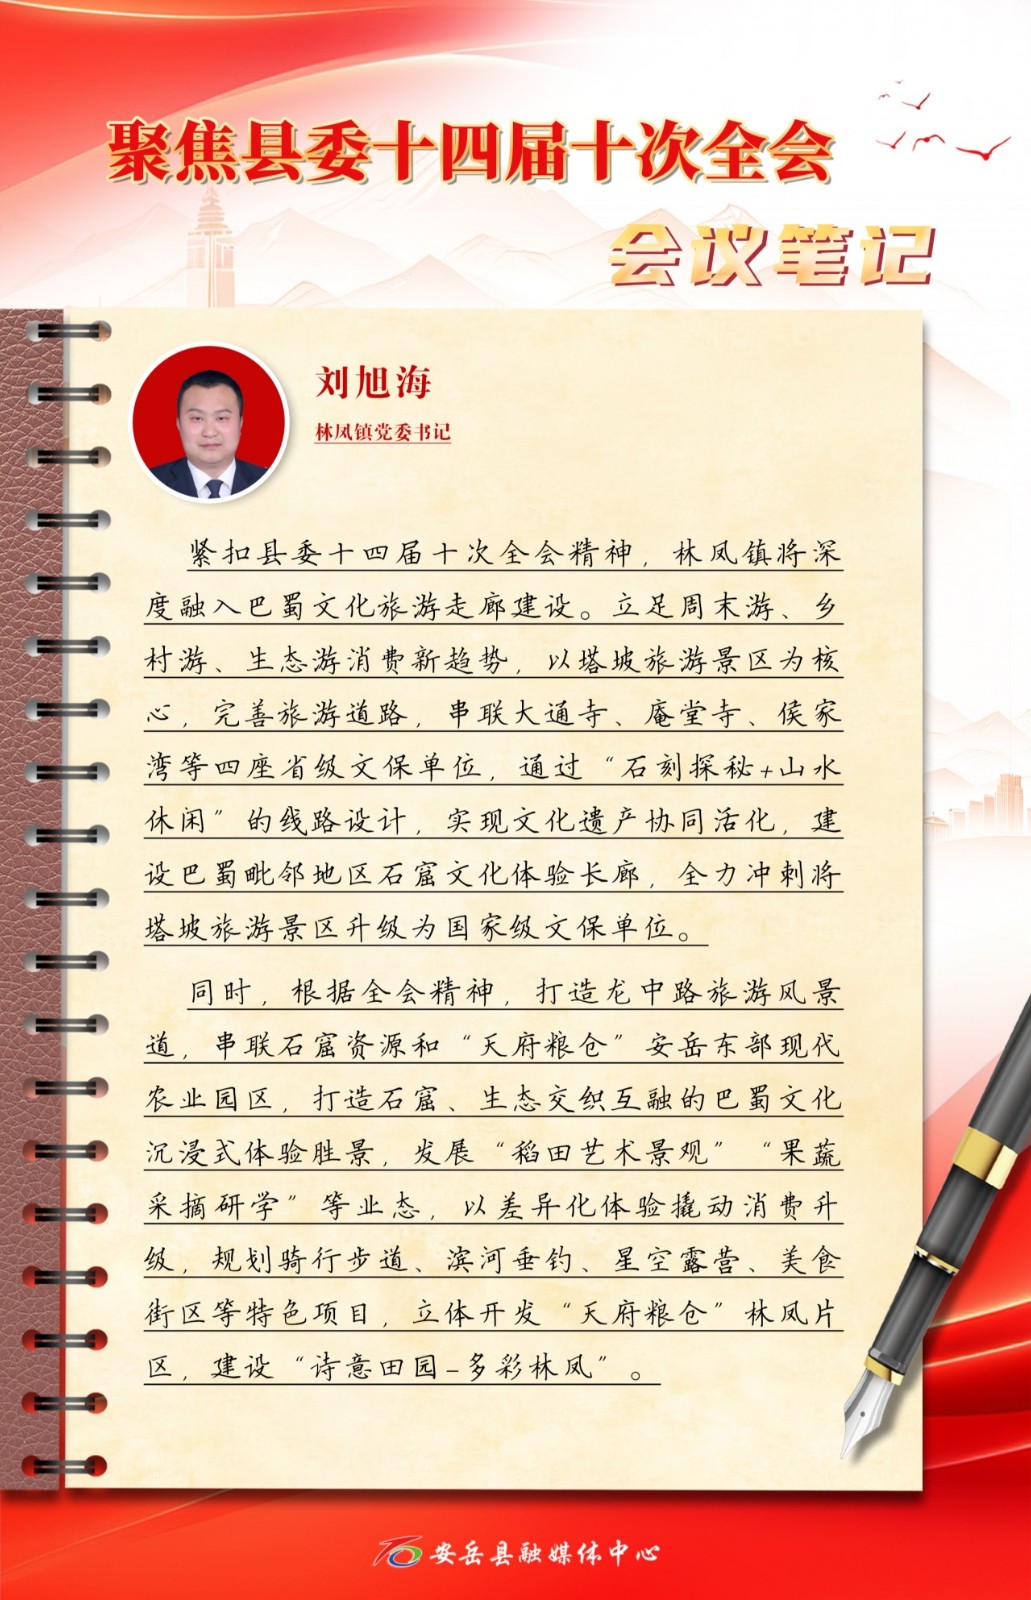 聚焦县委十四届十次全会
会议笔记
刘旭海
林凤镇党委书记
紧扣县委十四届十次全会精神，林凤镇将深
度融入巴蜀文化旅游走廊建设。立足周末游、乡
村游、生态游消费新趋势，以塔坡旅游景区为核
心，完善旅游道路，串联大通寺、庵堂寺、侯家
湾等四座省级文保单位，通过“石刻探秘+山水
休闲”的线路设计，实现文化遗产协同活化，建
设巴蜀毗邻地区石窟文化体验长廊，全力冲刺将
塔坡旅游景区升级为国家级文保单位。
同时，根据全会精神，打造龙中路旅游风景
道，串联石窟资源和“天府粮仓”安岳东部现代
农业园区，打造石窟、生态交织互融的巴蜀文化
沉浸式体验胜景，发展“稻田艺术景观”“果蔬
采摘研学”等业态，以差异化体验撬动消费升
级，规划骑行步道、滨河垂钓、星空露营、美食
街区等特色项目，立体开发“天府粮仓”林凤片
区，建设“诗意田园-多彩林凤”。
安岳县融媒体中心